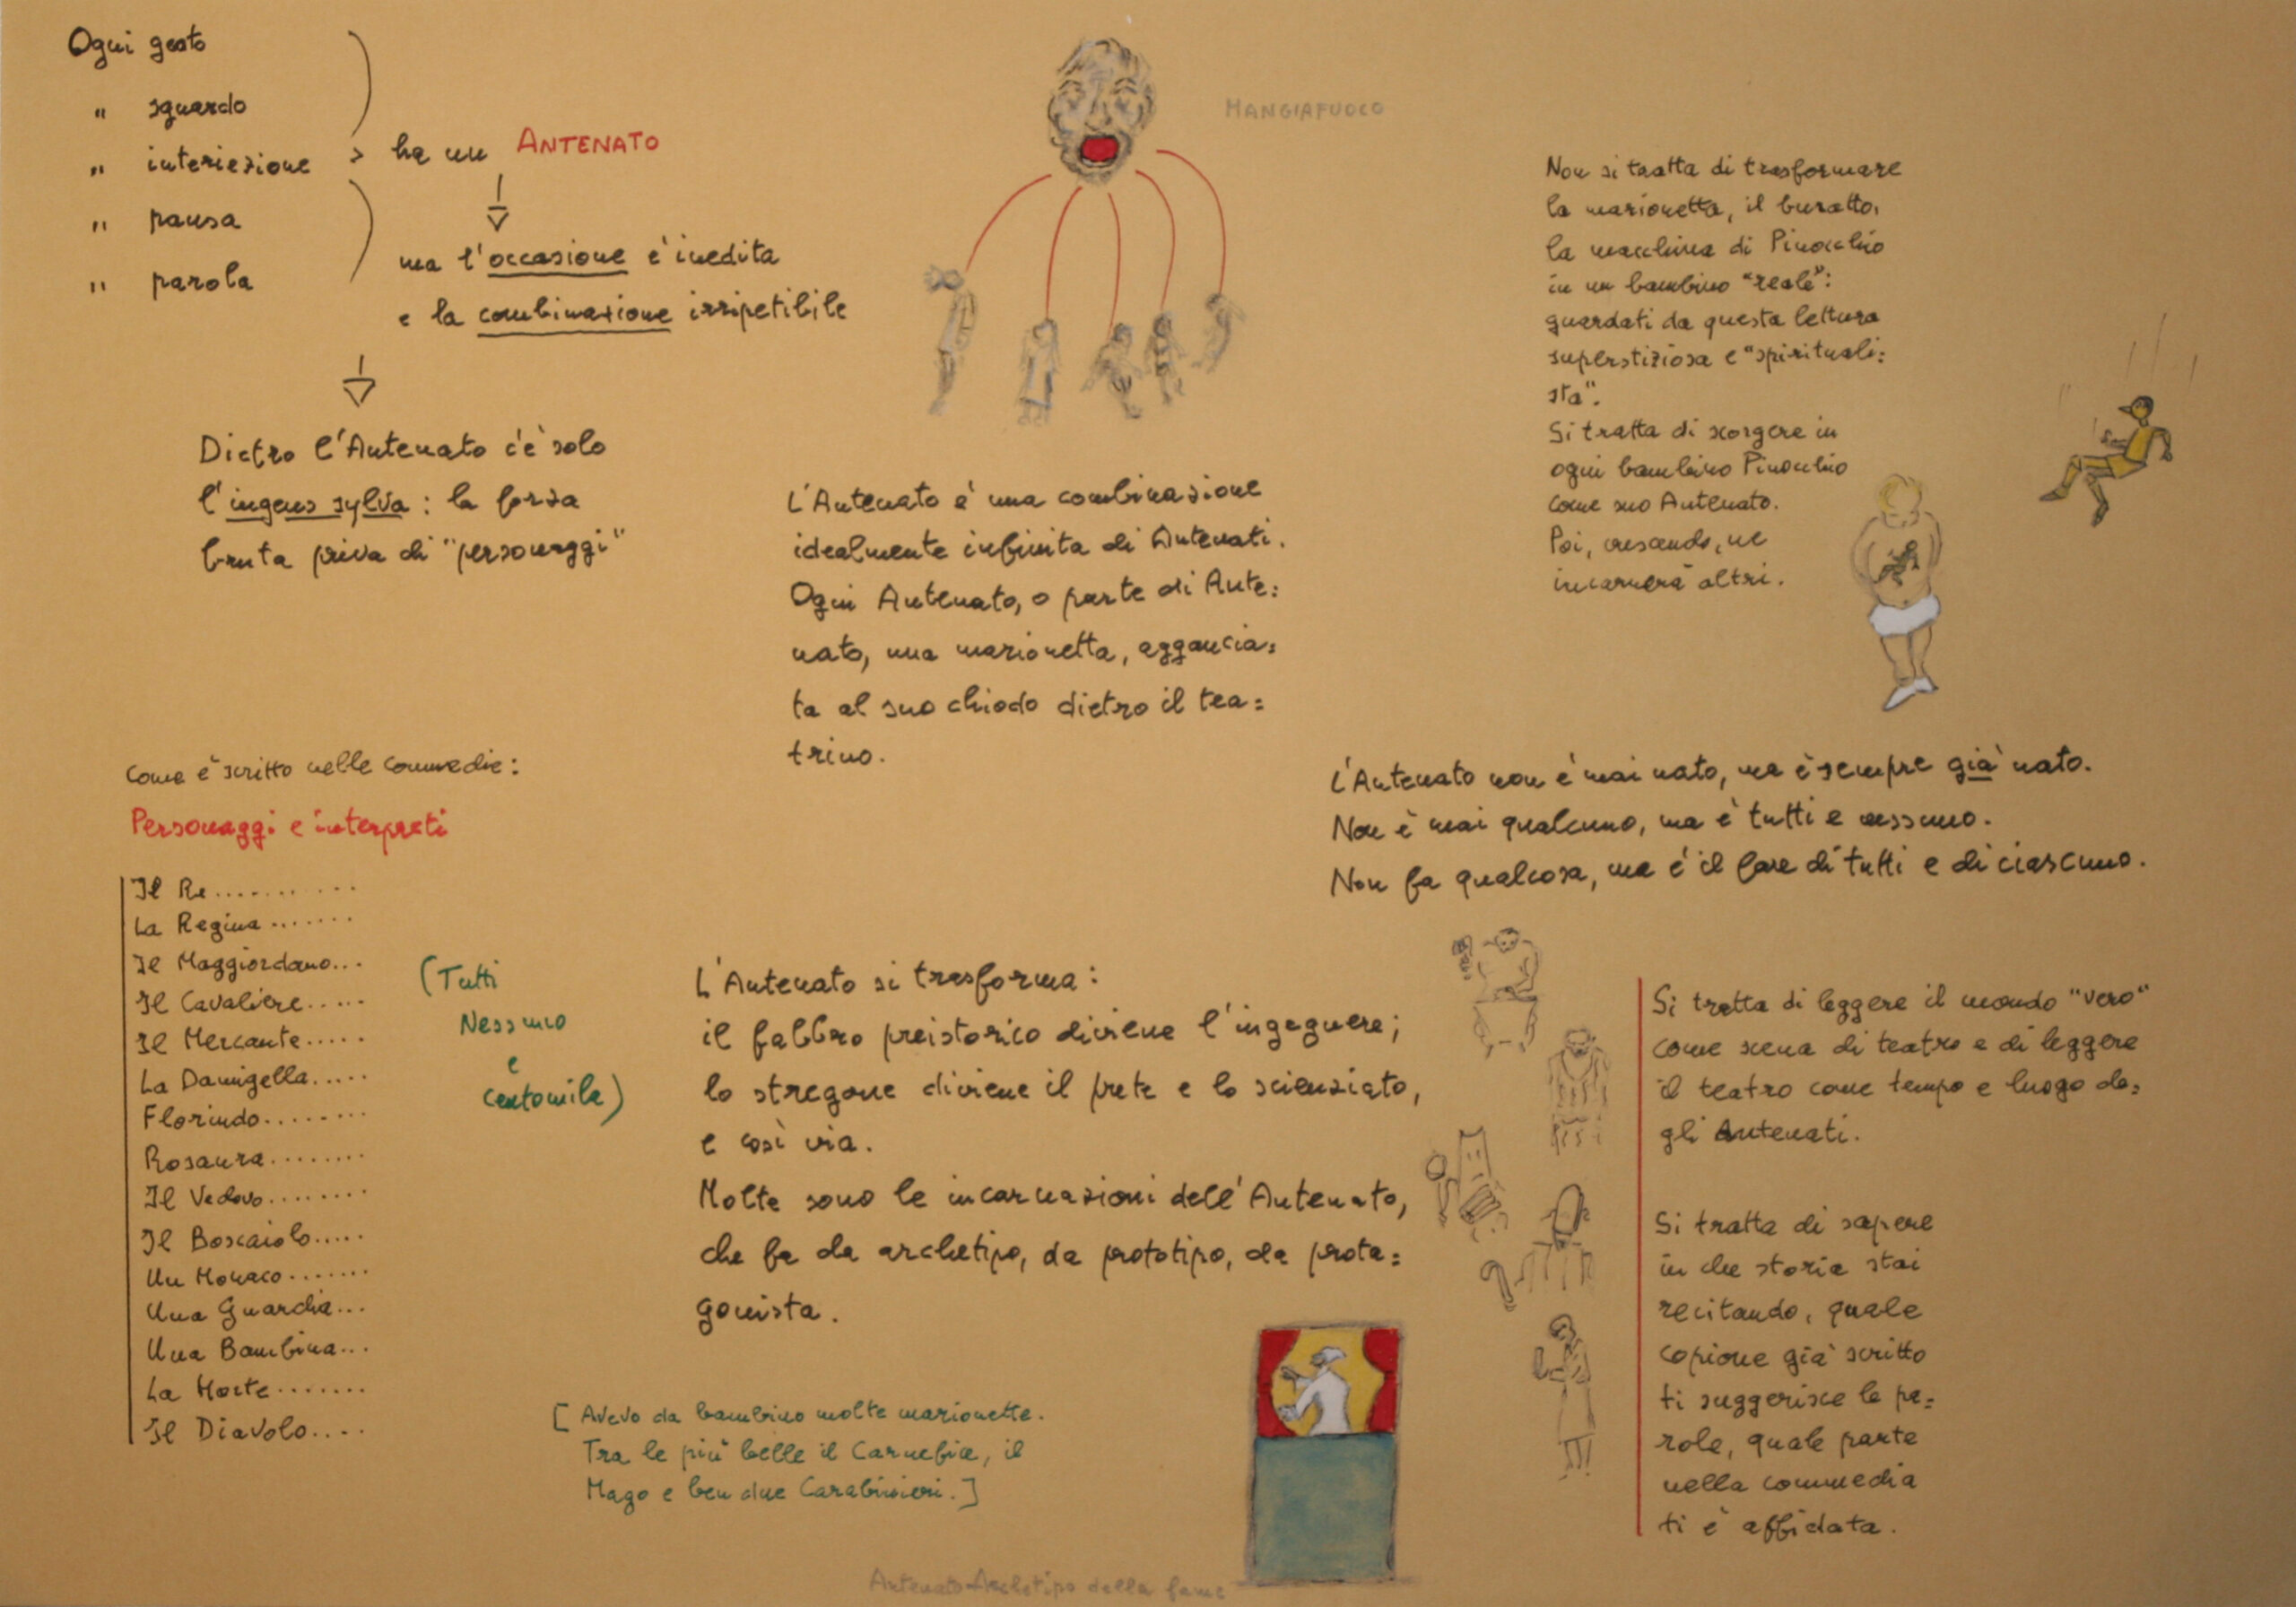 Ogni gesto
" sguardo
" interiezione
" pausa
" parola
> ha un ANTENATO
ma l'occasione è inedita
e la combinazione irripetibile
Dietro l'Antenato c'è solo
l'ingens sylva : la forza
bruta priva di "personaggi"
MANGIAFUOCO
L'Antenato è una combinazione
idealmente infinita di Antenati.
Ogni Antenato, o parte di Ante=
nato, una marionetta, aggancia=
ta al suo chiodo dietro il tea=
trino.
Non si tratta di trasformare
la marionetta, il buratto,
la macchina di Pinocchio
in un bambino "reale":
guardati da questa lettura
superstiziosa e "spirituali=
sta".
Si tratta di scorgere in
ogni bambino Pinocchio
come suo Antenato.
Poi, crescendo, ne
incarnerà altri.
L'Antenato non è mai nato, ma è sempre già nato.
Non è mai qualcuno, ma è tutti e nessuno.
Non fa qualcosa, ma è il fare di tutti e di ciascuno.
Come è scritto nelle commedie:
Personaggi e interpreti
Il Re...........
La Regina.......
Il Maggiordano...
Il Cavaliere.....
Il Mercante.....
La Damigella.....
Florindo.........
Rosaura........
Il Vedovo........
Il Boscaiolo.....
Un Monaco.......
Una Guardia...
Una Bambina...
La Morte.......
Il Diavolo....
(Tutti
Nessuno
e
centomila)
L'Antenato si trasforma:
il fabbro preistorico diviene l'ingegnere;
lo stregone diviene il prete e lo scienziato,
e così via.
Molte sono le incarnazioni dell'Antenato,
che fa da archetipo, da prototipo, da prota=
gonista.
[ Avevo da bambino molte marionette.
Tra le più belle il Carnefice, il
Mago e ben due Carabinieri. ]
Antenato-Archetipo della fame
Si tratta di leggere il mondo "vero"
come scena di teatro e di leggere
il teatro come tempo e luogo de=
gli Antenati.
Si tratta di sapere
in che storia stai
recitando, quale
copione già scritto
ti suggerisce le pa=
role, quale parte
nella commedia
ti è affidata.